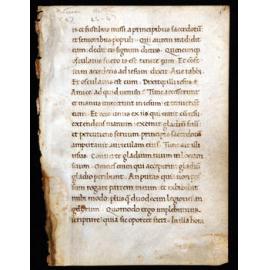 is et fustibus missi a principibus sacerdotū
et senioribus populi · Qui autem tradidit
eum · dedit eis signum dicens · Quemcumq
osculatus fuero ipse est tenete eum · Et confes
tim accedens ad iesum dixit · Aue rabbi ·
Et osculatus est eum · Dixitq illi iesus ·
Amice ad quod uenisti · Tunc accesserunt
et manus iniecerunt in iesum · et tenuerunt
eum · Et ecce unus ex his qui erant cum iesu
extendens manum · exemit gladiū suū ·
et percutiens seruum principis sacerdotū
amputauit auriculam eius · Tunc ait illi
iesus · Conuerte gladium tuum in locum
suum · Omnes enim qui acceperint gladiū
gladio peribunt · An putas quia non pos
sum rogare patrem meum · et exhibebit
mihi modo · plus q̄ duodecim legiones an
gelorum · Quomodo ergo implebuntur
scripture · quia sic oportet fieri · In illa hora